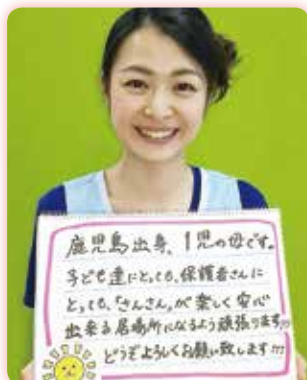 鹿児島出身、1児の母です。
子ども達にとっても、保護者さんに
とっても、"さんさん"が楽しく安心
出来る居場所になるよう頑張ります!!!
どうぞよろしくお願い致します!!!